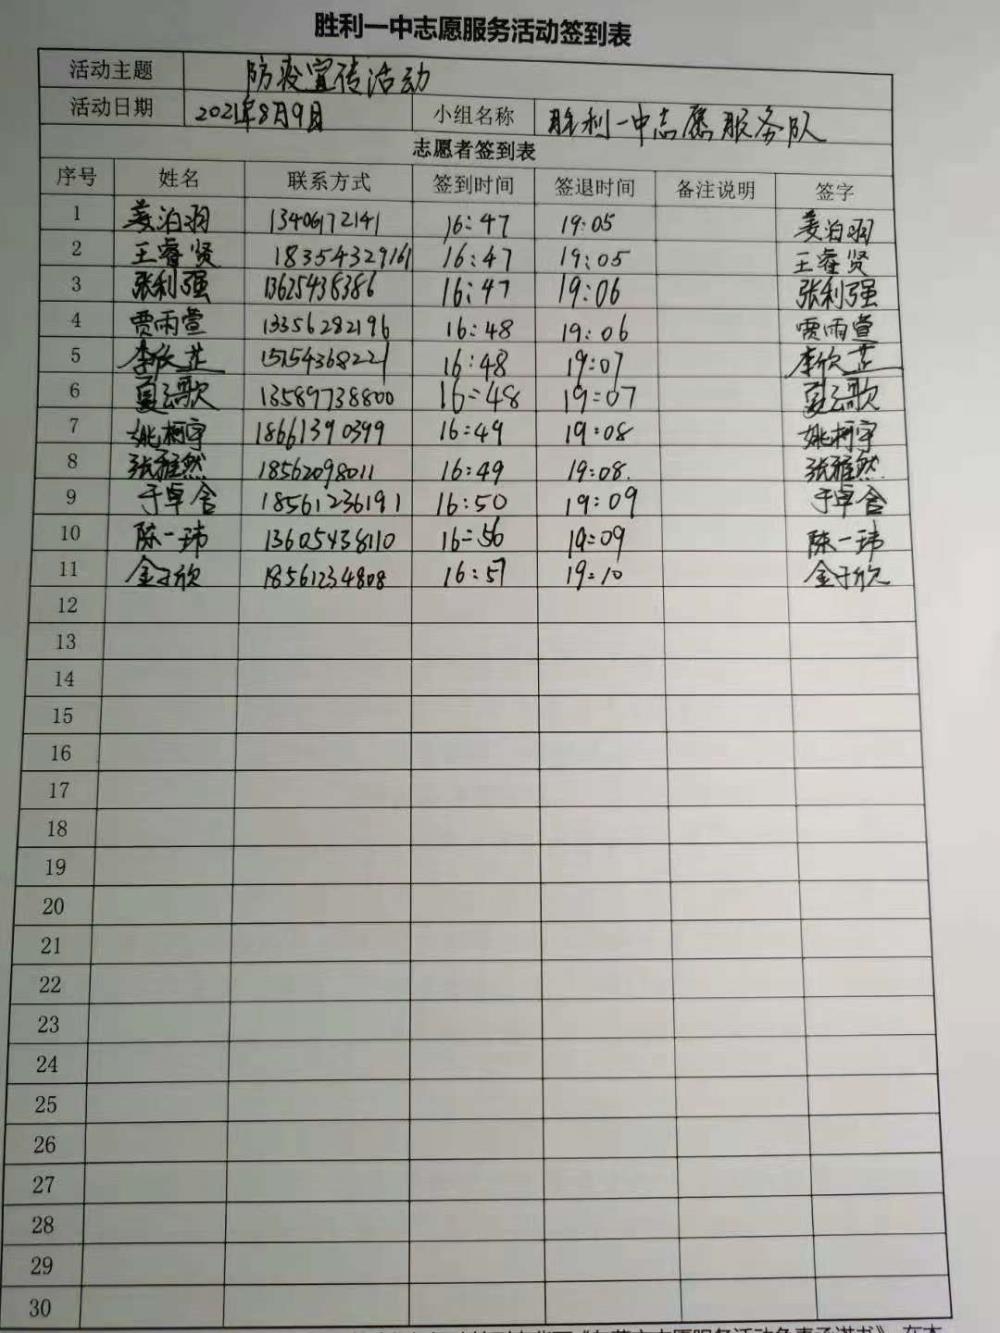 胜利一中志愿服务活动签到表
活动主题 防疫宣传活动
活动日期 2021年8月9日 小组名称 胜利一中志愿服务队
志愿者签到表
序号 姓名 联系方式 签到时间 签退时间 备注说明 签字
1 姜泊羽 13406172141 16:47 19:05 姜泊羽
2 王睿贤 18354329161 16:47 19:05 王睿贤
3 张利强 13625438386 16:47 19:06 张利强
4 贾雨萱 13356282196 16:48 19:06 贾雨萱
5 李欣芷 15154368221 16:48 19:07 李欣芷
6 夏云歌 13589738800 16:48 19:07 夏云歌
7 姚柯宇 18661390399 16:49 19:08 姚柯宇
8 张雅然 18562098011 16:49 19:08. 张雅然
9 于卓含 18561236191 16:50 19:09 于卓含
10 陈一玮 13605438110 16:56 19:09 陈一玮
11 金子欣 18561234808 16:57 19:10 金子欣
12
13
14
15
16
17
18
19
20
21
22
23
24
25
26
27
28
29
30